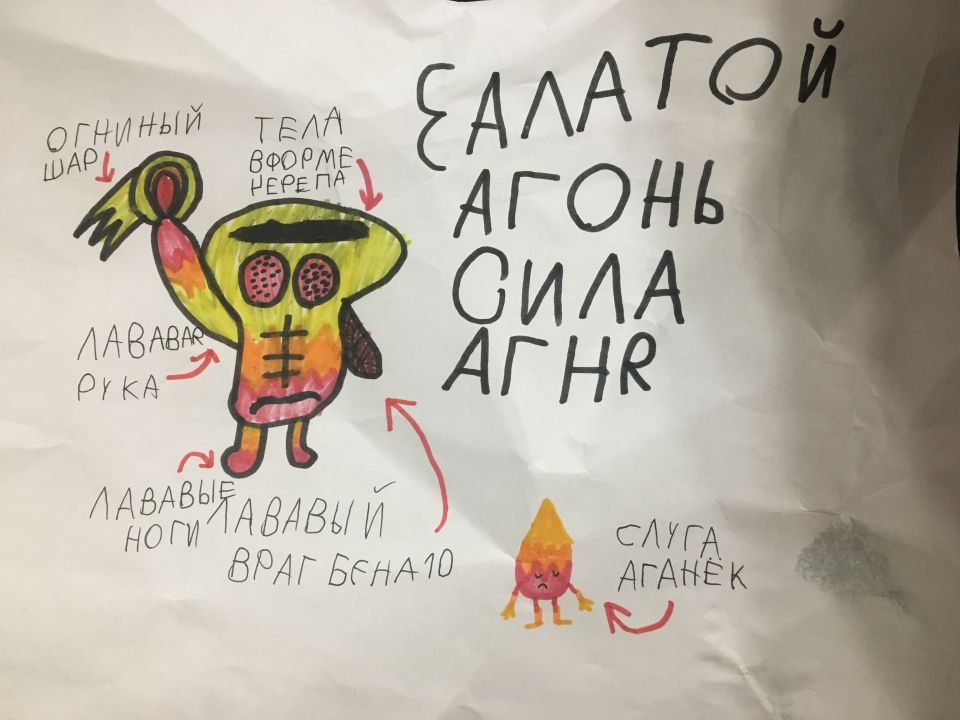 ЗАЛАТОЙ
АГОНЬ
СИЛА
АГНЯ
ОГНИНЫЙ
ШАР
ТЕЛА
ВФОРМЕ
ЧЕРЕПА
ЛАВАВАЯ
РУКА
ЛАВАВЫЕ
НОГИ
ЛАВАВЫЙ
ВРАГ БЕНА10
СЛУГА
АГАНЁК